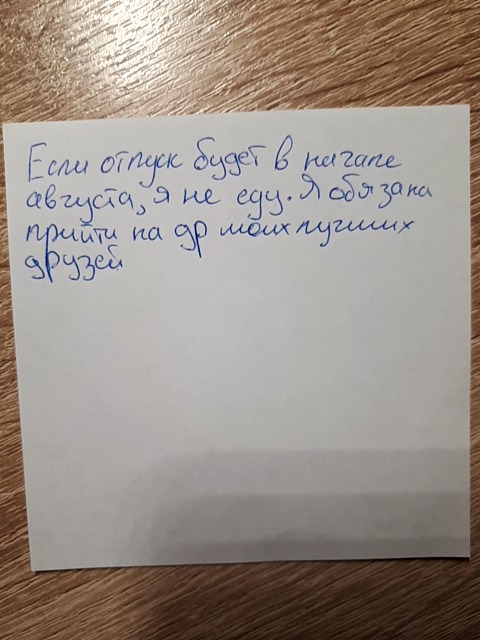 Если отпуск будет в начале
августа, я не еду. Я обязана
прийти на др моих лучших
друзей